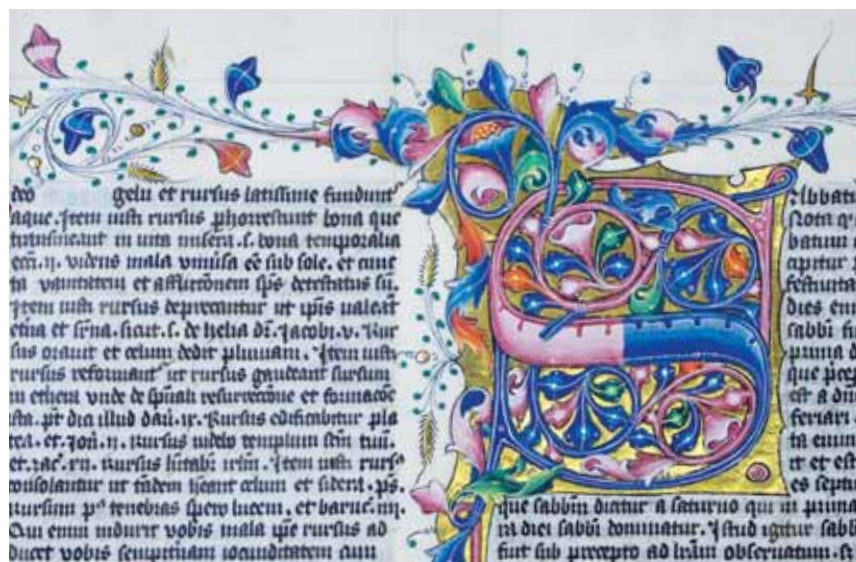 deo gelu et rursus latissime fundunt
aque. Item iusti rursus phorrescunt bona que
transmeant in uita misera .s. bona temporalia
ecc̄. ij. videns mala vniūsa eē sub sole. et cunc
ta vanitatem et afflictōnem sp̄s detestatus sū.
Item iusti rursus deprecantur ut ip̄is ualeāt
et .s. de helia dn̄. Jacobi. v. Rur
sus orauit et celum dedit pluuiam. Item iusti
rursus reformant ut rursus gaudeant sursum
in etheri vnde de sp̄uali resurrectōne et
sta. pt̄ dici illud dan̄. ix. Rursus edificabitur pla
tea. et. Jon̄. ij. Rursus uidebo templum sc̄m tuū.
et. zac̄. Rursus irl̄m. Item iusti rurs
consolantur ut tādem celum et sidera. ps.
rursum pꝰ tenebras spero lucem. et baruc̄. iiij.
Qui enim induxit vobis mala ip̄e rursus ad
ducet vobis sempit̄nam iocunditatem cum
S
abbatū
Nota q
batum
capitur
festiuita
dies eni
sabbi
prima d
que p̄cep
est a
feriari.
ta enim
it et est
es septi
que sabbm̄ dicitur a saturno qui in prima
diei sabbi dominatur. Istud igitur sabb
fuit sub precepto ad lr̄am obseruatum.